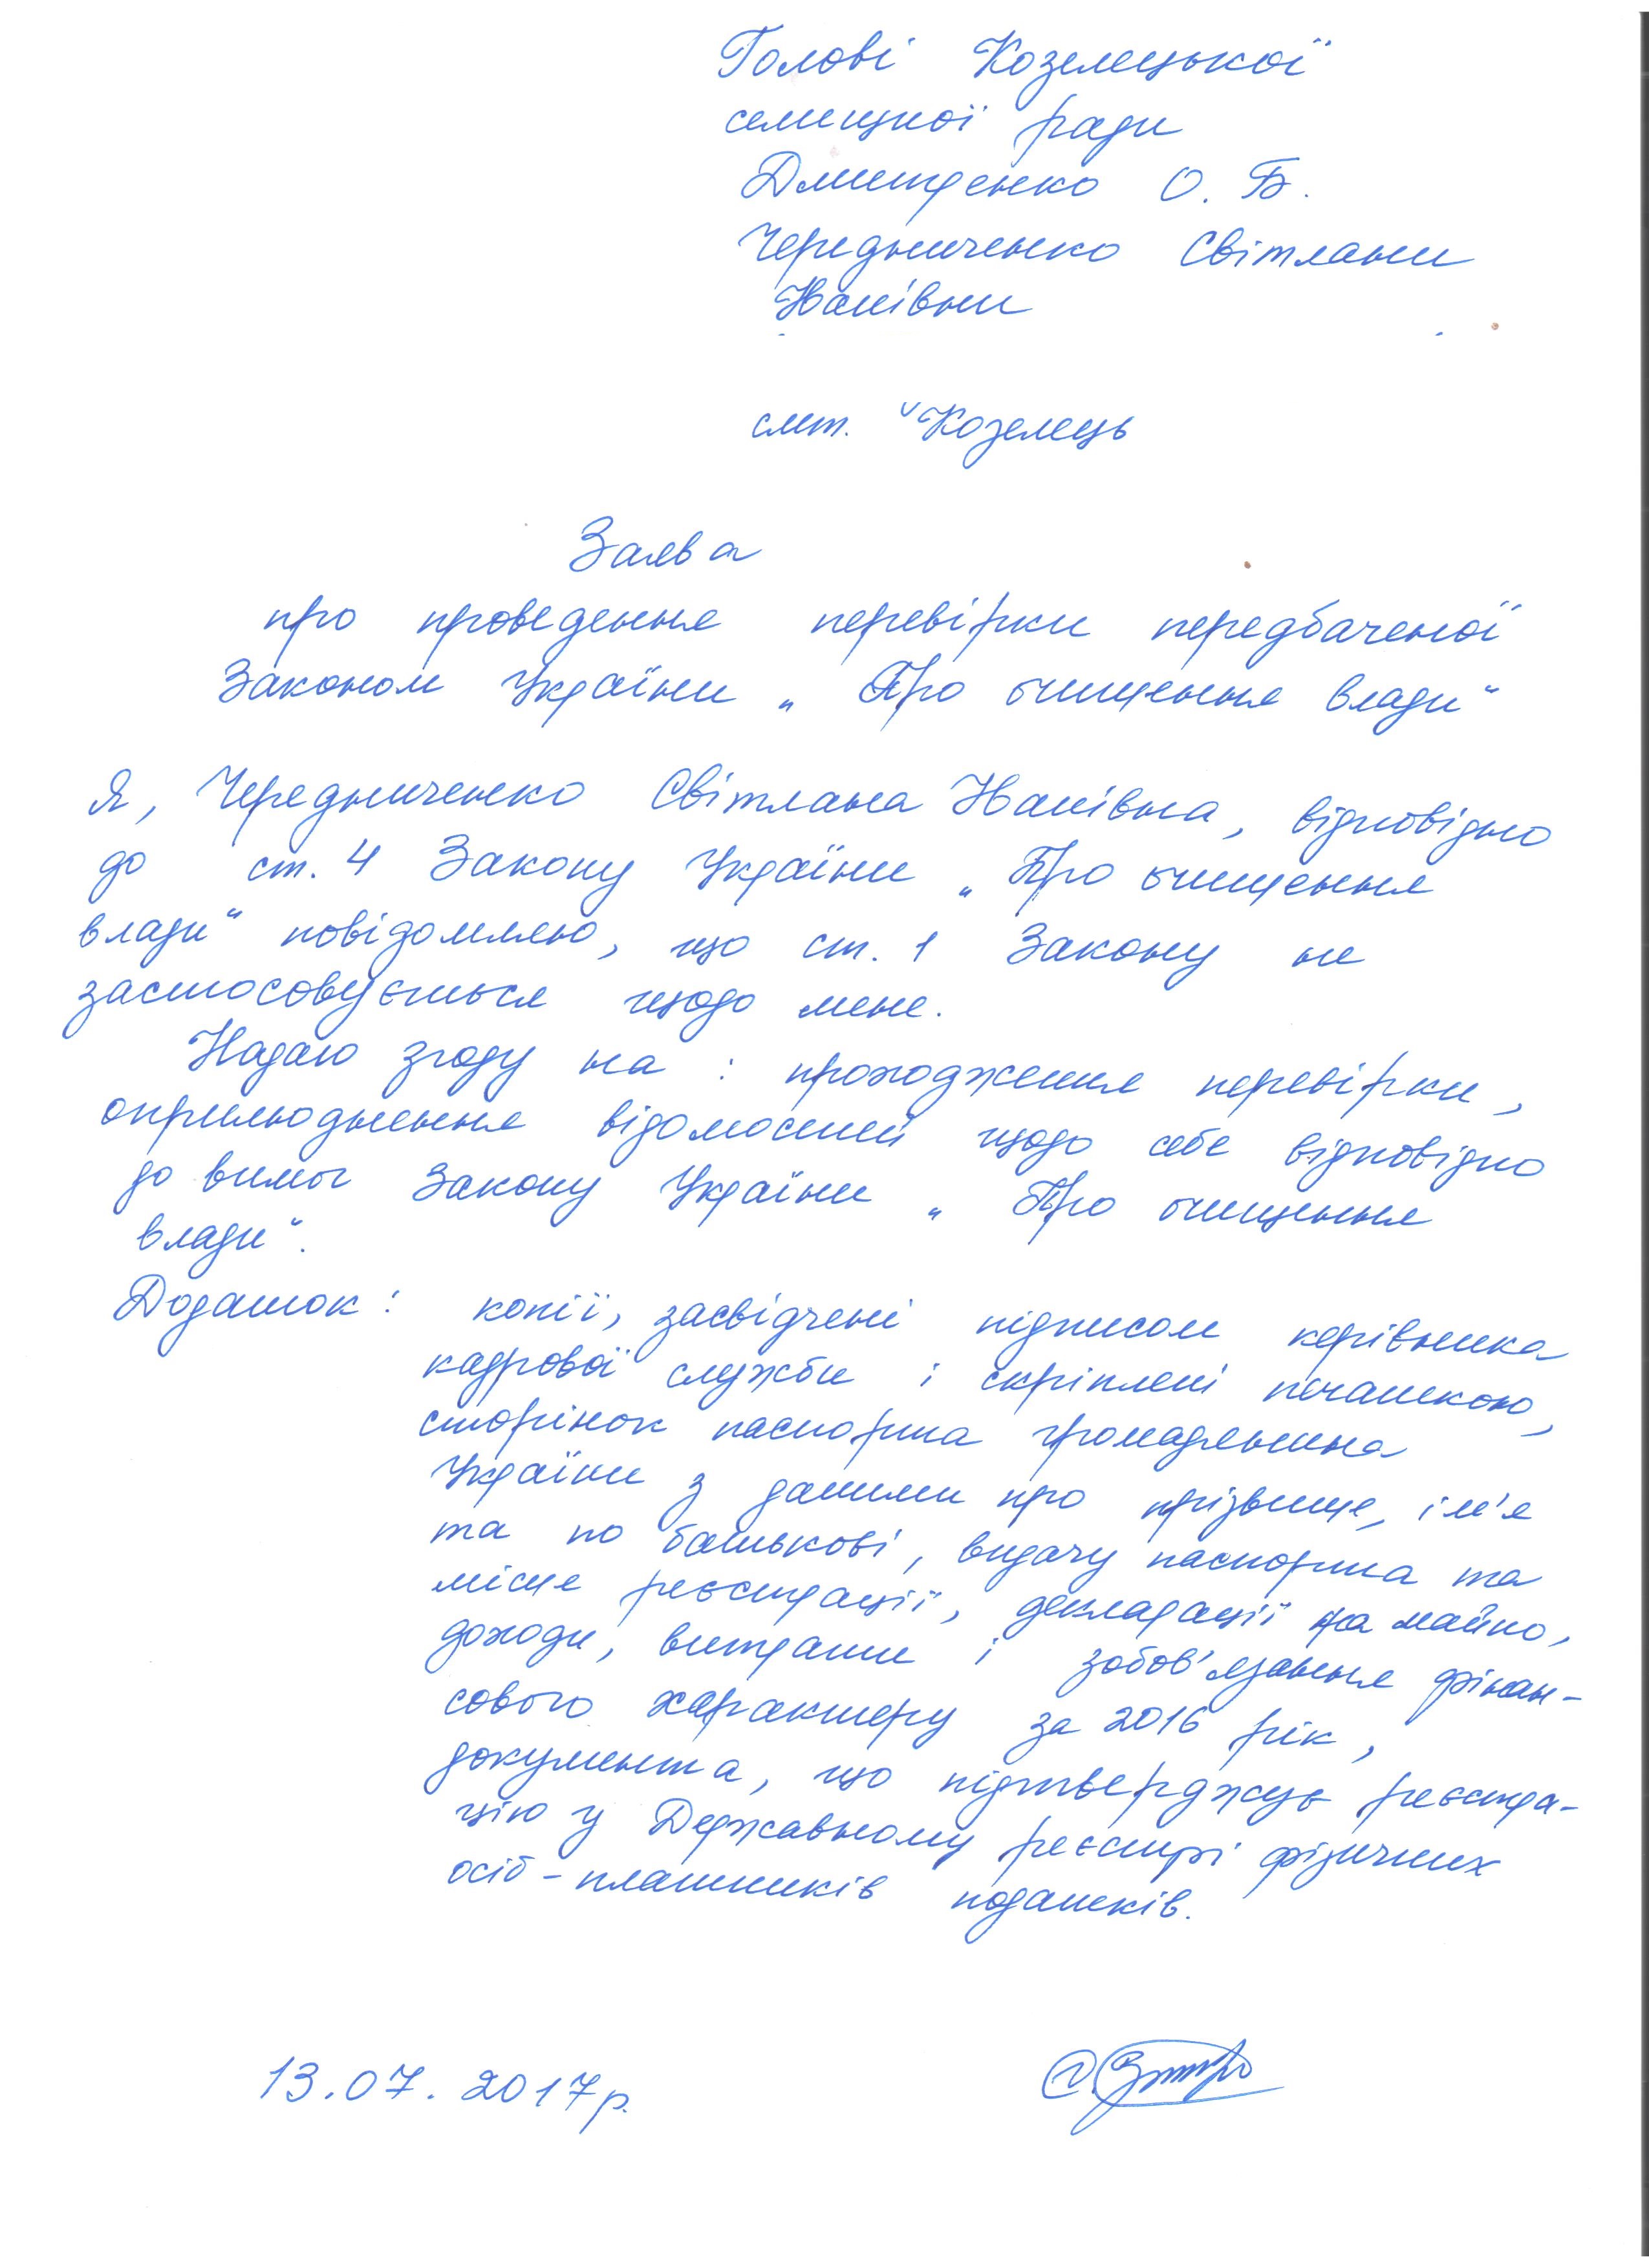 Голові Козелецької
селищної ради
Дмитренко О. Б.
Чередниченко Світлани
смт. Козелець
Заява
про проведення перевірки передбаченої
Законом України „Про очищення влади“
Я, Чередниченко Світлана, відповідно
до ст. 4 Закону України „Про очищення
влади“ повідомляю, що ст. 1 Закону не
застосовується щодо мене.
Надаю згоду на : проходження перевірки,
оприлюднення відомостей щодо себе відповідно
до вимог Закону України „Про очищення
влади“.
Додаток: копії, засвідчені підписом керівника
кадрової служби і скріплені печаткою,
сторінок паспорта громадянина
України з даними про прізвище, ім'я
та по батькові, видачу паспорта та
місце реєстрації, декларації на майно,
доходи, витрати і зобов'язання фінан-
сового характеру за 2016 рік,
документа, що підтверджує реєстра-
цію у Державному реєстрі фізичних
осіб-платників податків.
13.07.2017р.